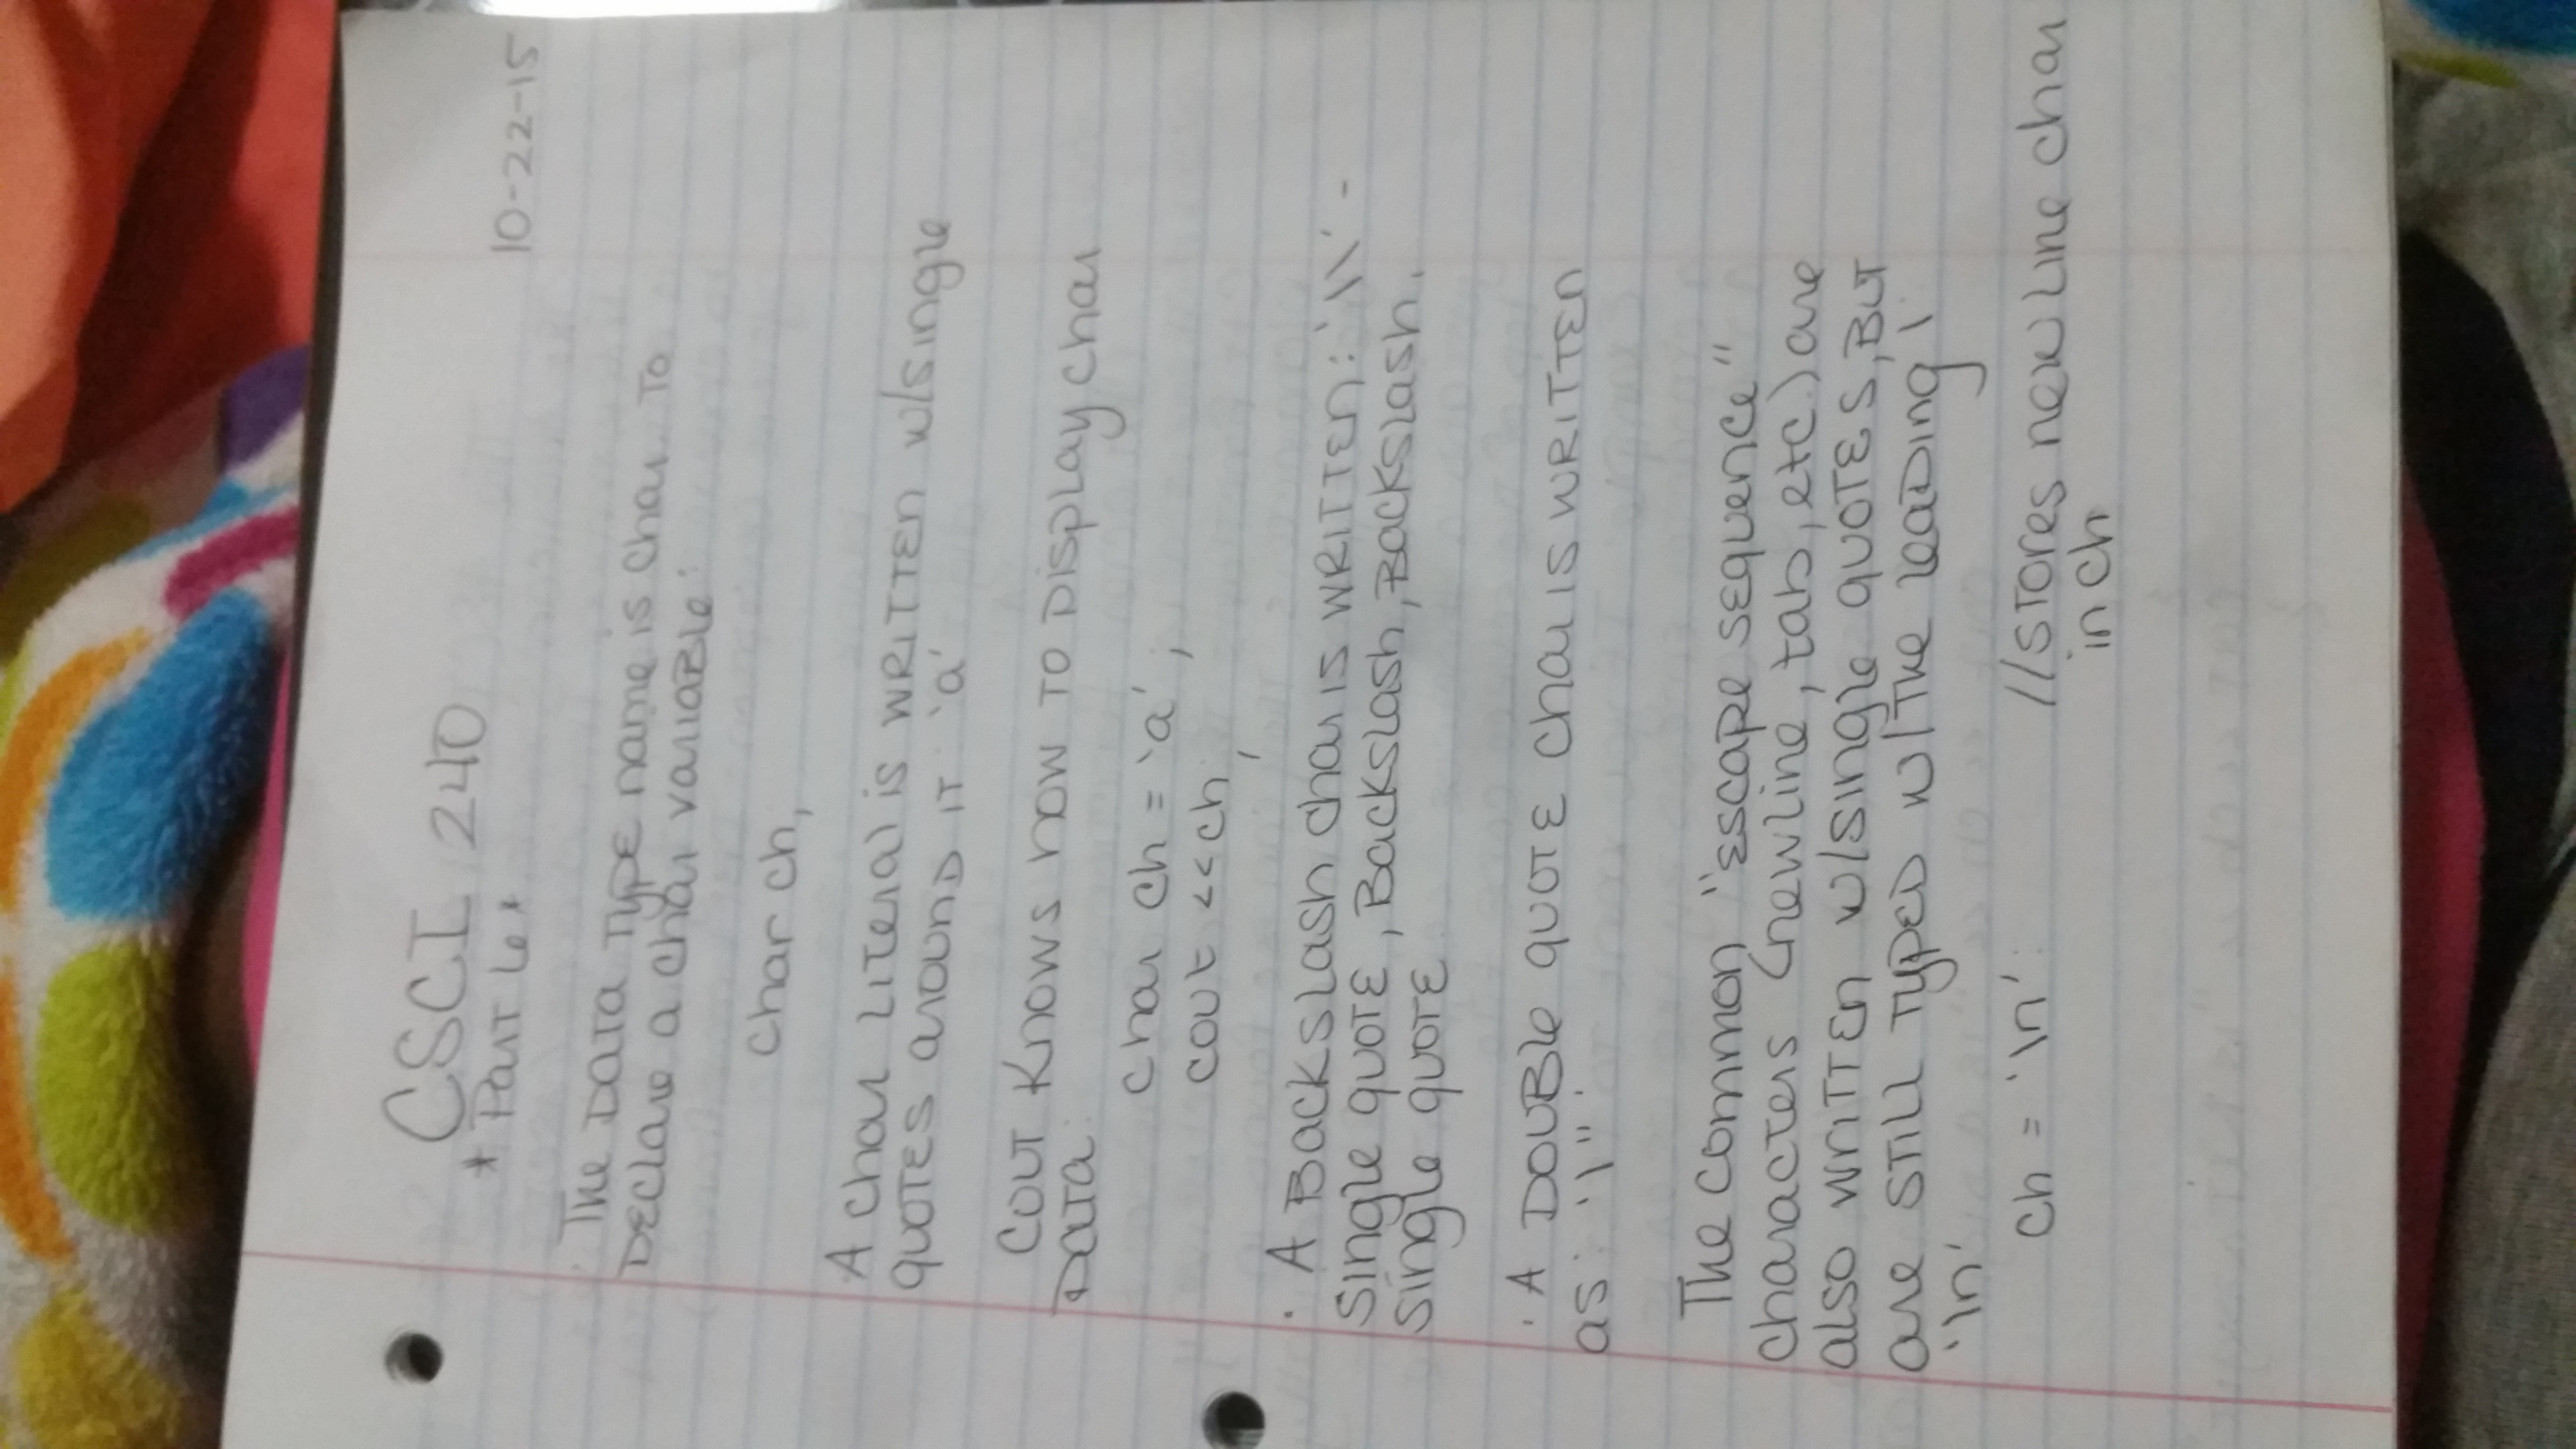 10-22-15
CSCI 240
* Part 6 *
· The Data Type name is char. To
Declare a char variable:
char ch,
A char Literal is written w/single
quotes around it 'a'
Cout Knows how to Display char
Data.
char ch = 'a' ;
cout << ch ;
· A Backslash char is written: '\\' -
single quote, Backslash, Backslash,
single quote
· A Double quote char is written
as: '\"'
The common "escape sequence"
characters (newline, tab, etc.) are
also written w/single quotes, But
are still typed w/the leading \
'\n'
ch = '\n': //stores new line char
in ch